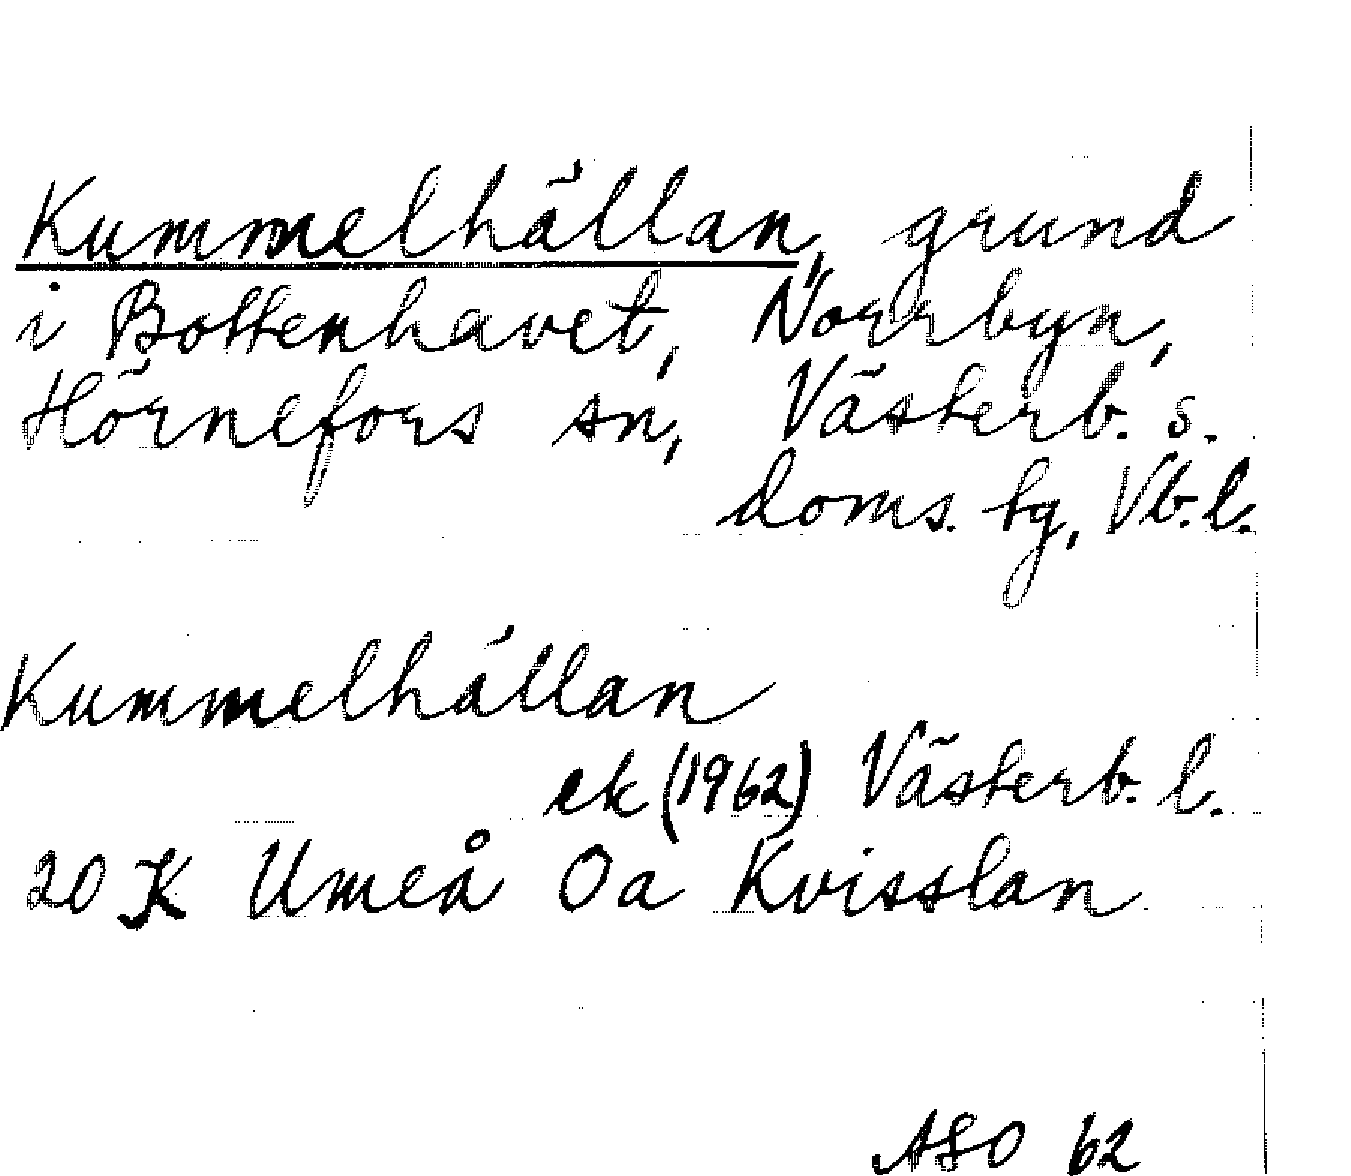 Kummelhällan, grund
i Bottenhavet, Norrbyn,
Hörnefors sn, Västerb. s.
doms. tg, Vb. l.
Kummelhällan
ek (1962) Västerb. l.
20 K Umeå Oa Kvisslan
ASO 62